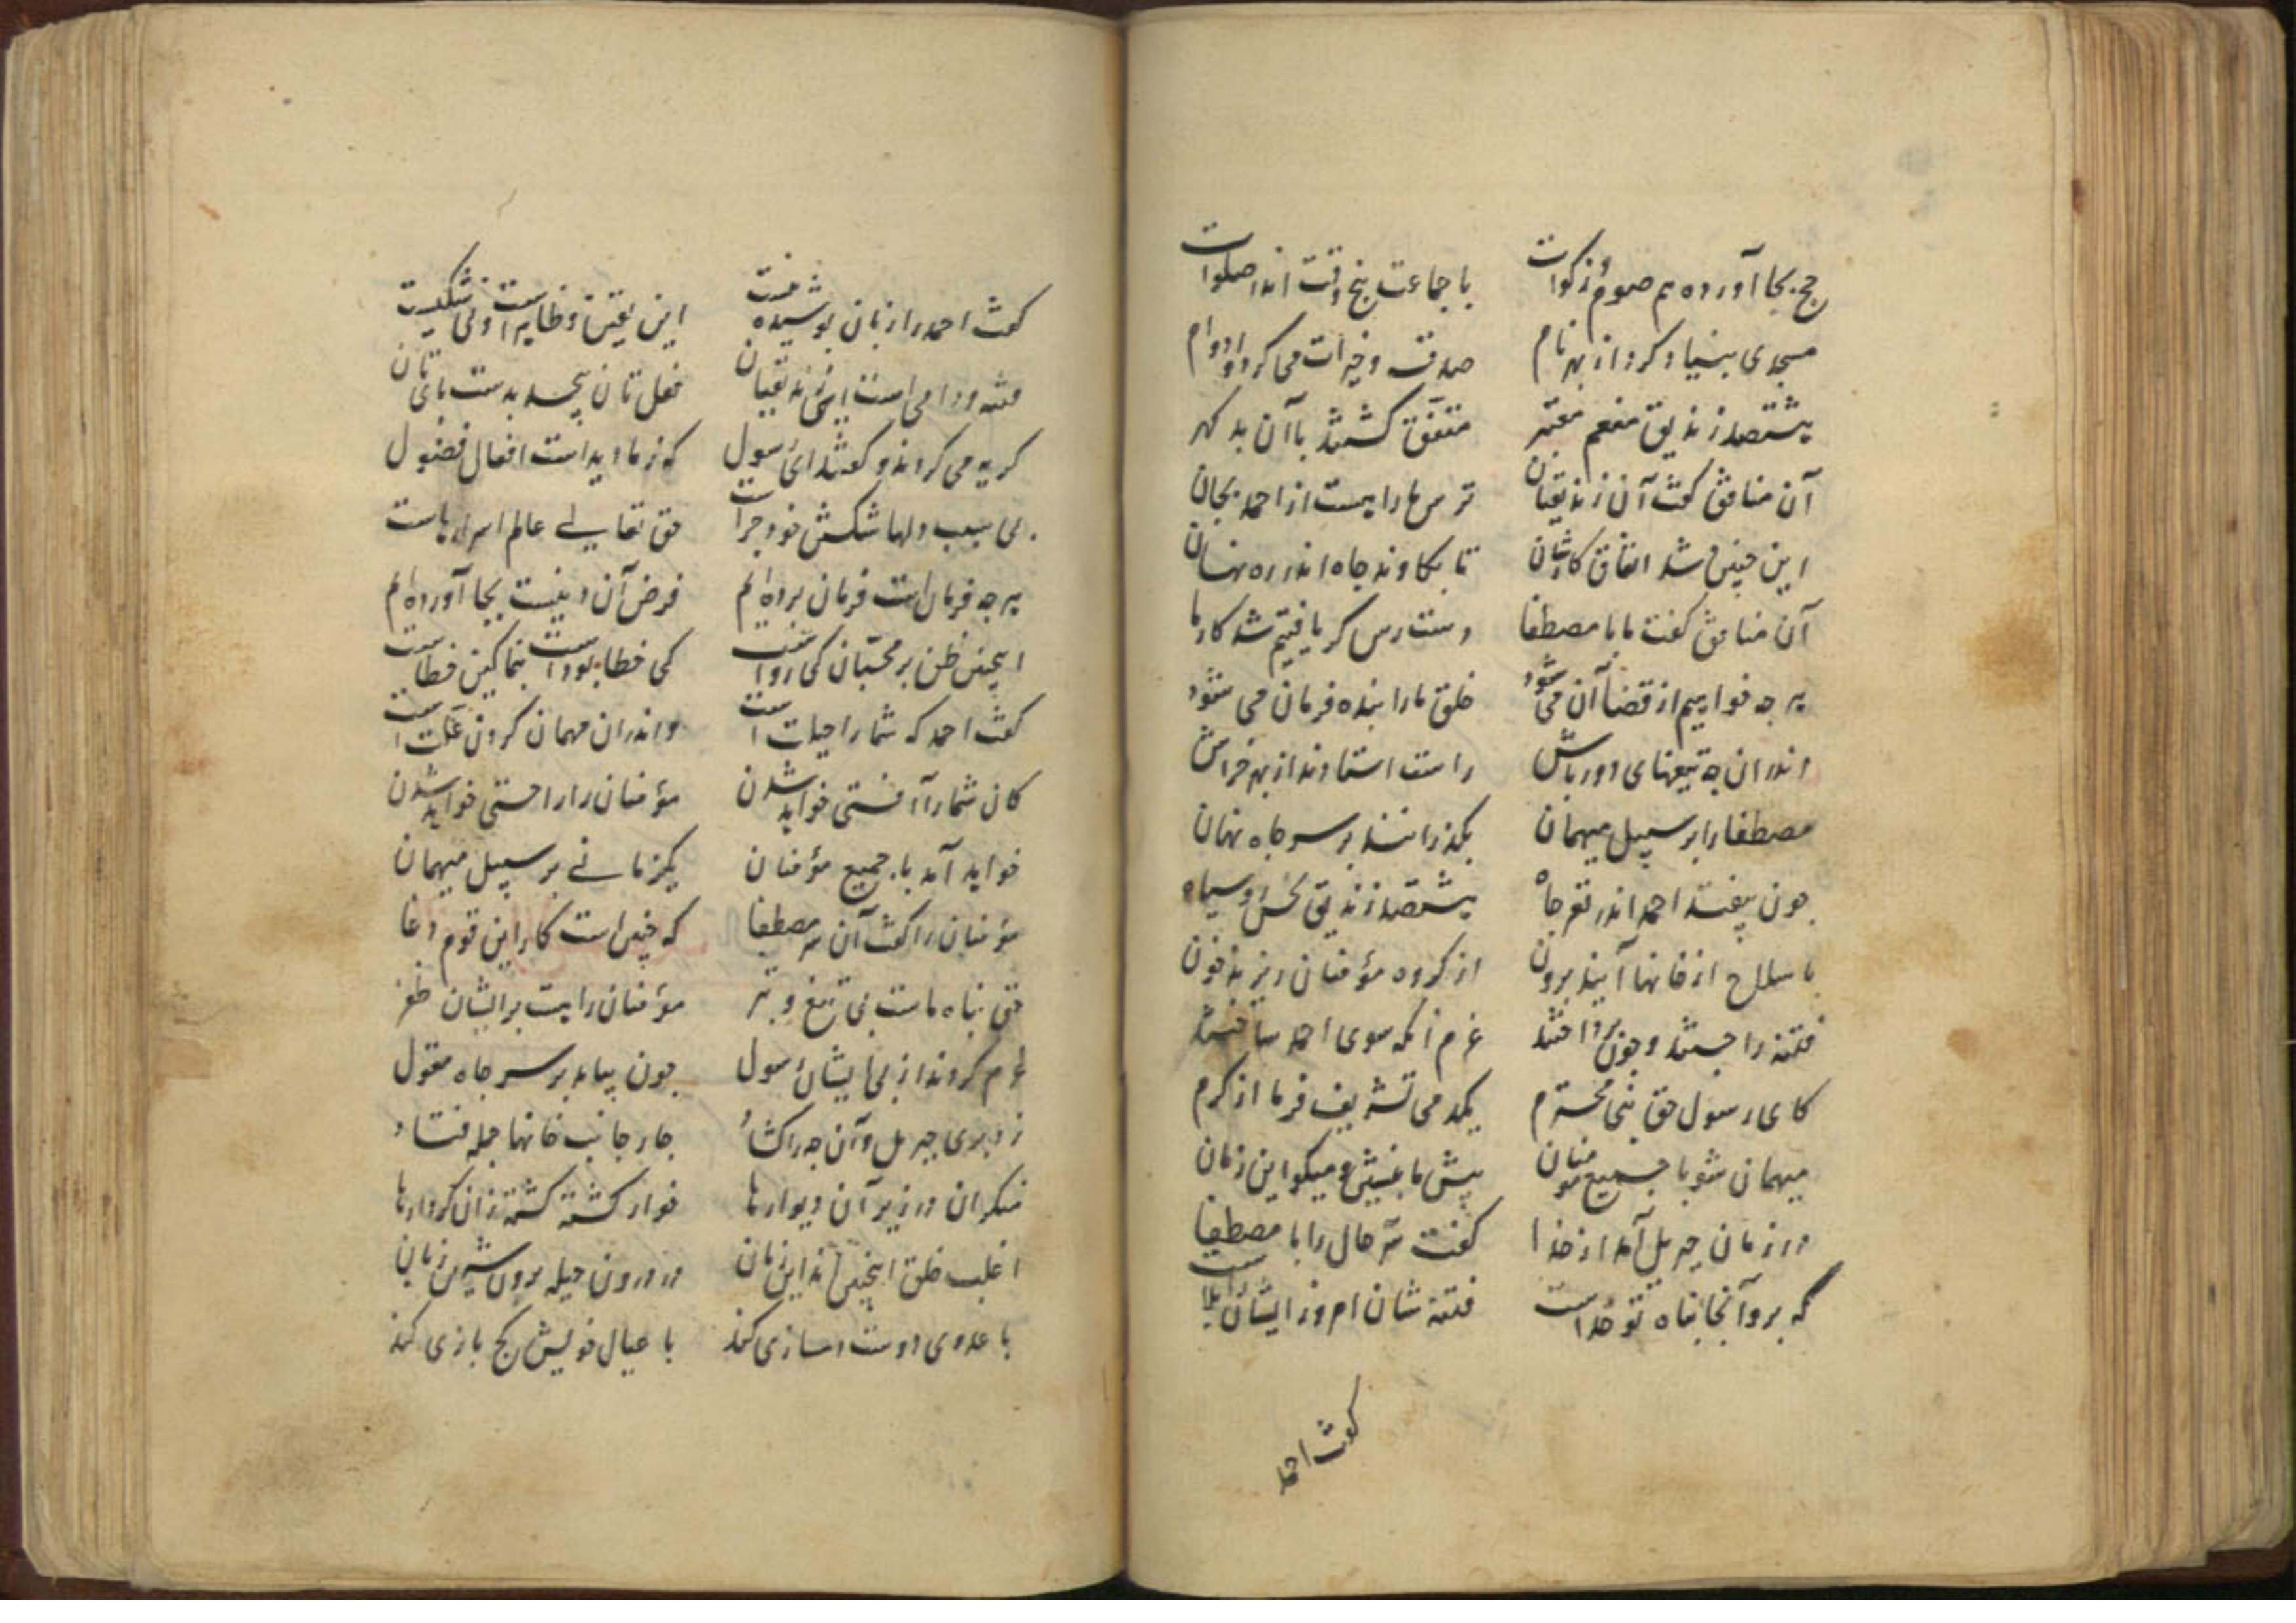 حج بجا آورده هم صوم و زکوات با جماعت پنج وقت اندر صلوات
مسجدی بنیاد کرد از بهر نام صدقه و خیرات می کرد او دوام
هشتصد زندیق منعم معتبر متفق کشتند با آن بد کهر
آن منافق کفت آن زندیقیان ترس ما را هست از احمد بجان
این چنین شد اتفاق کارشان تا بکاوند چاه اندر ره نهان
آن منافق کفت ما با مصطفا دست رس کر یافتیم شد کارها
هر چه خواهیم از قضا آن می شود خلق ما را بنده فرمان می شود
اندران چه تیغهای دورباش راست استادند از بهر خراش
مصطفا را بر سبیل میهمان بکذرانند بر سر چاه نهان
چون بیفتد احمد اندر قعر چاه هشتصد زندیق نحس رو سیاه
با سلاح از خانها آیند برون از کروه مؤمنان ریزند خون
فتنه را جستند و چون پرداختند عزم آنکه سوی احمد ساختند
کای رسول حق نبی محترم یکدمی تشریف فرما از کرم
میهمان شو با جمیع مؤمنان پیش ما بنشین و میکو این زمان
در زمان جبریل آمد از خدا کفت سر حال را با مصطفا
که برو آنجا پناه تو خداست فتنه شان امروز ایشان را بلاست
کفت احمد
کفت احمد را زبان پوشیده نیست این یقین و ظاهر است و بی شکیست
فتنه و دامی است این زندیقیان فعل تان پیچد بدست پای تان
کریه می کردند و کفتند ای رسول که ز ما دیدست افعال فضول
بی سبب دلها شکستن خود چراست حق تعالی عالم اسرارهاست
هر چه فرمان است فرمان برده ایم فرض آن دینیست بجا آورده ایم
اینچنین ظن بر محبان کی رواست کی خطا بوداست بنما کین خطاست
کفت احمد که شما را حیلت است و اندران مهمان کردن علت است
کان شما را آفتی خواهد شدن مؤمنان را راحتی خواهد شدن
خواهد آمد با جمیع مؤمنان یکزمانی بر سبیل میهمان
مؤمنان را کفت آن سر مصطفا که چنین است کار این قوم دغا
حق پناه ماست بی تیغ و تبر مؤمنان را هست بر ایشان ظفر
عزم کردند از پی ایشان رسول چون بیامد بر سر چاه مغول
زد پری جبریل و آن چه را کشاد چار جانب خانها جمله فتاد
منکران در زیر آن دیوارها خوار کشته کشته زان کردارها
اغلب خلق اینچنین اند این زمان در درون حیله برون شیرین زبان
با عدوی دوست دمسازی کنند با عیال خویش کج بازی کنند